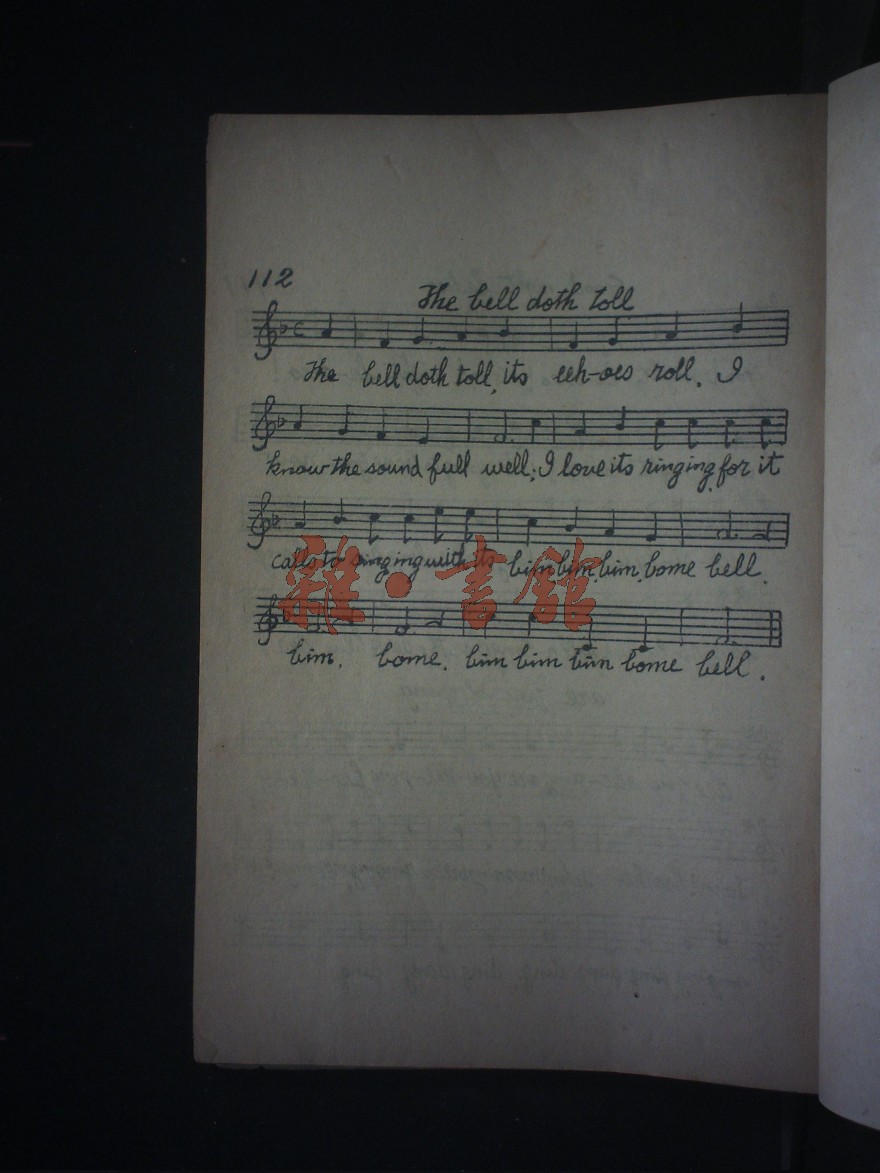 112
The bell doth toll
The bell doth toll, its ech-oes roll. I
know the sound full well; I love its ringing, for it
calls to singing with its bim, bim, bim, bome bell.
雜·書館
bim. bome. bim bim bim bome bell.